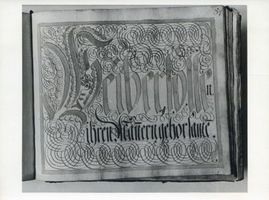 Weiber solln
ihren Mänern gehorsame.